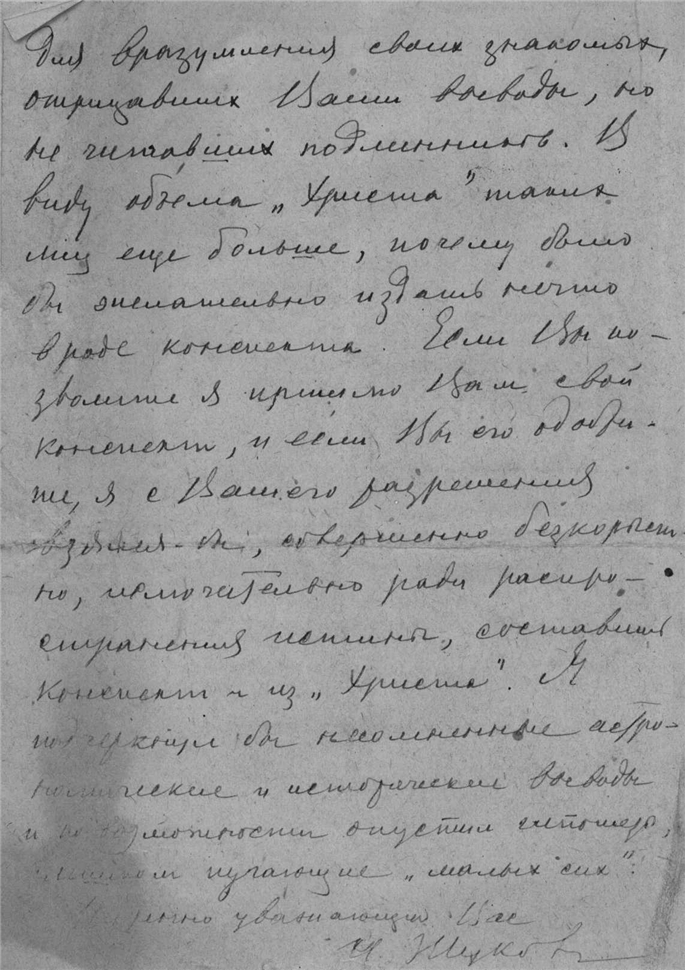 Для вразумления своих знакомых,
отрицавших Ваши выводы, но
не читавших подлинник. В
виду объема „Христа" таких
лиц еще больше, почему было
бы желательно издать нечто
вроде конспекта. Если Вы по-
зволите я пришлю Вам свой
конспект, и если Вы его одобри-
те, я с Вашего разрешения
взялся-бы, совершенно безкорыст-
но, исключительно ради распро-
странения истины, составить
конспект и из „Христа". Я
подчеркнул бы несомненные астро-
номические и исторические выводы
и по возможности опустил гипотезы,
слишком пугающие „малых сих".
уважающий Вас